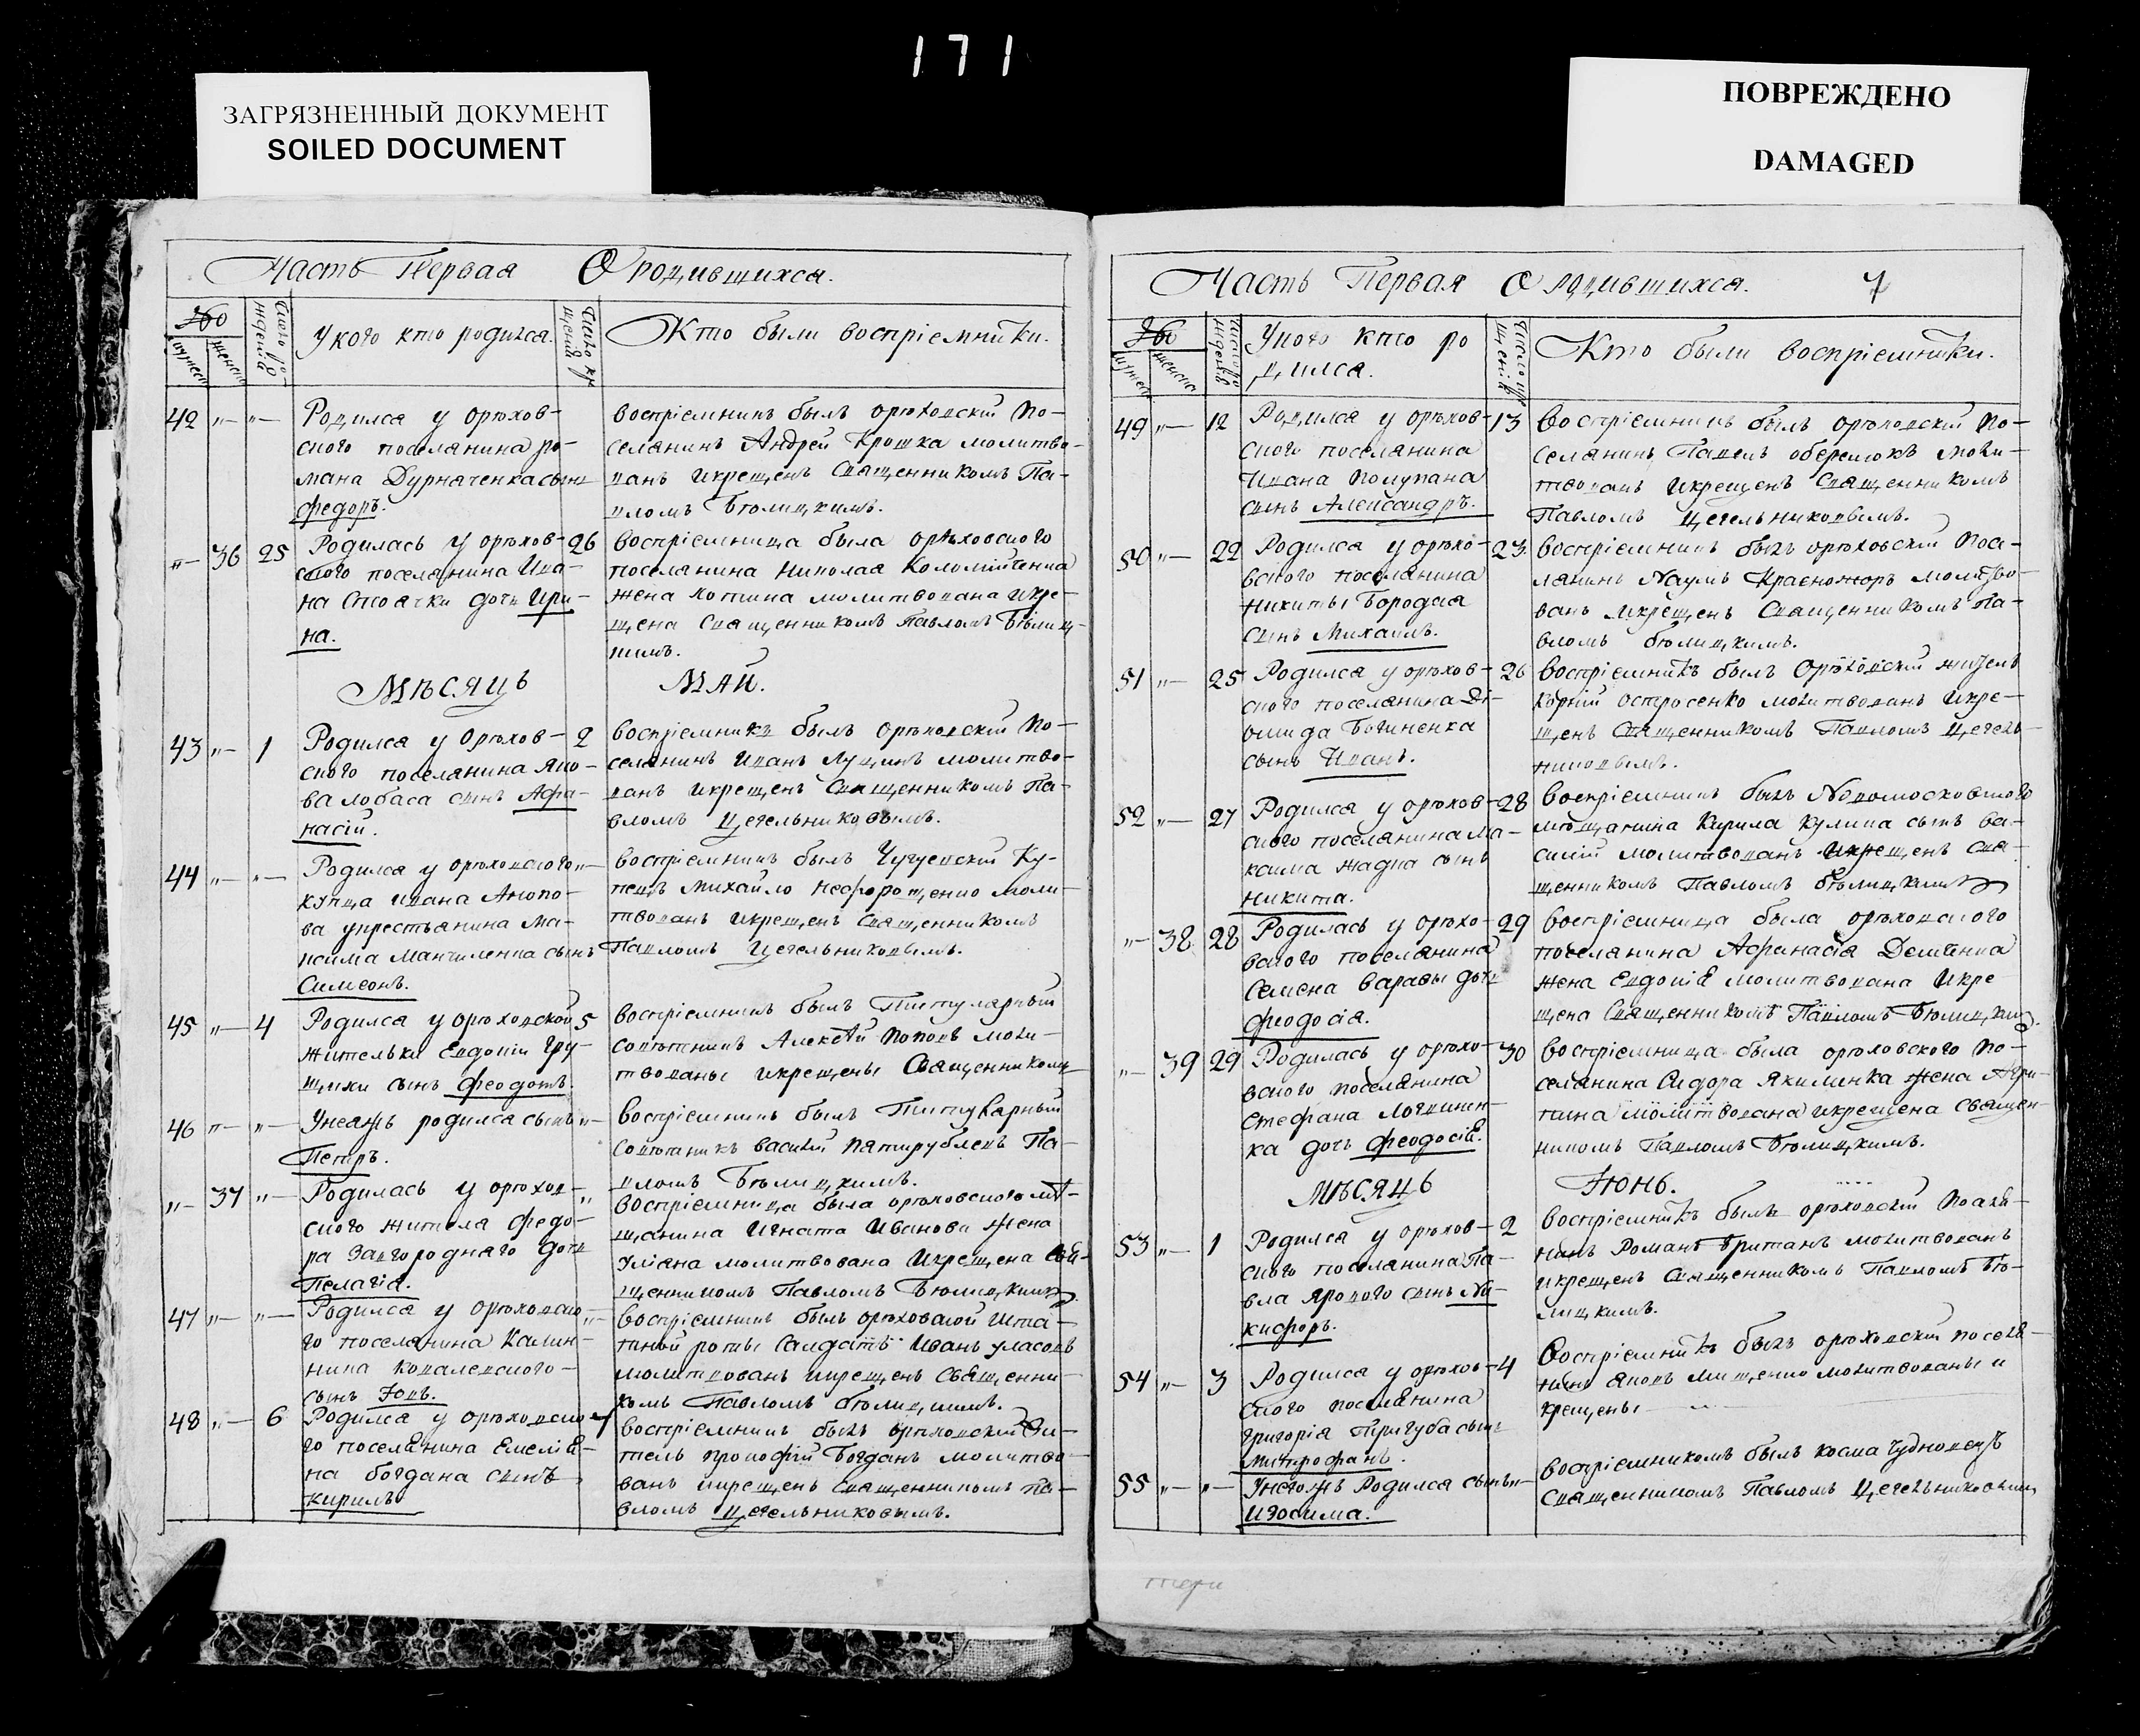 171
ЗАГРЯЗНЕННЫЙ ДОКУМЕНТ
SOILED DOCUMENT
ПОВРЕЖДЕНО
DAMAGED
Часть Первая О родившихся.
У кого кто родился. Кто были воспріемники.
42 „— „— Родился у орѣхов-
ского поселянина ро-
мана Дурначенка сынъ
федоръ.
воспріемникъ былъ орѣховскій по-
селянинъ Андрей Крошка молитво-
ванъ икрещенъ Священникомъ Па-
вломъ Бѣлицкимъ.
„— 36 25 Родилась у орѣхов- 26
ского поселянина Ива-
на дочь Ири-
на.
воспріемница была орѣховского
поселянина Николая Коломійченка
жена молитвована икре-
щена Священникомъ Павломъ Бѣлиц-
кимъ.
МѢСЯЦЪ МАЙ.
43 „— 1 Родился у Орѣхов- 2
ского поселянина Яко-
ва лобаса сынъ Афа-
насій.
воспріемникъ былъ орѣховскій по-
селянинъ Иванъ Лущикъ молитво-
ванъ икрещенъ Священникомъ Па-
вломъ Цегельниковымъ.
44 „— „— Родился у орѣховского „—
купца Ивана Анопо-
ва укрестьянина Ма-
ксима сынъ
Симеонъ.
воспріемникъ былъ Чугуевскій Ку-
пецъ Михайло моли-
твованъ икрещенъ Священникомъ
Павломъ Цегельниковымъ.
45 „— 4 Родился у орѣховской 5
жительки Евдокіи Гру-
щихи сынъ феодотъ.
воспріемникъ былъ Титулярный
совѣтникъ Алексѣй Поповъ моли-
твованы икрещены Священникомъ
46 „— „— Унеяжъ родился сынъ „—
Петръ.
воспріемникъ былъ Титулярный
совѣтникъ василій Пятирублевъ Па-
вломъ Бѣлицкимъ.
„— 37 „— Родилась у орѣхов- „
ского жителя федо-
ра Загороднаго дочь
Пелагія.
воспріемница была орѣховского мѣ-
щанина Игната Иванова жена
Уліяна молитвована Икрещена Свя-
щенникомъ Павломъ Бѣлицкимъ.
47 „— „— Родился у орѣховско- „—
го поселянина Калин-
ника Ковалевского
сынъ Іовъ.
воспріемникъ былъ орѣховской Шта-
тной роты Салдатъ Иванъ уласовъ
молитвованъ икрещенъ Священни-
комъ Павломъ бѣлицкимъ.
48 „— 6 Родился у орѣховско- 7
го поселянина Емелія-
на богдана сынъ
кирилъ
воспріемникъ былъ орѣховскій жи-
тель прокофій Богданъ молитво-
ванъ икрещенъ Священникомъ Па-
вломъ Цегельниковымъ.
Часть Первая О родившихся. 7
Укого кто ро
дился. Кто были воспріемники.
49 „— 12 Родился у орѣхов- 13
ского поселянина
Ивана Полупана
сынъ Александръ.
воспріемникъ былъ орѣховскій По-
селянинъ Павелъ оберемокъ моли-
твованъ икрещенъ Священникомъ
Павломъ Цегельниковымъ.
50 „— 22 Родился у орѣхо- 23
вского поселянина
Никиты Бородая
сынъ Михаилъ.
воспріемникъ былъ орѣховскій посе-
лянинъ Наумъ Красножоръ молитво-
ванъ икрещенъ Священникомъ Па-
вломъ бѣлицкимъ.
51 „— 25 Родился у орѣхов- 26
ского поселянина Ді-
омида Богиненка
сынъ Иванъ.
воспріемникъ былъ Орѣховскій житель
Корній остросенко молитвованъ Икре-
щенъ Священникомъ Павломъ Цегель-
никовымъ.
52 „— 27 Родился у орѣхов- 28
ского поселянина Ма-
ксима жадка сынъ
никита.
воспріемникъ былъ Новомосковского
мѣщанина Кирила Кулика сынъ ва-
силій молитвованъ Икрещенъ Свя-
щенникомъ Павломъ бѣлицкимъ
„— 38 28 Родилась у орѣхо- 29
вского поселянина
Семена варавы дочь
феодосія.
воспріемница была орѣховского
поселянина Афанасія Демченка
жена Евдокія молитвована Икре
щена Священникомъ Павломъ Бѣлицким.
„— 39 29 Родилась у орѣхо- 30
вского поселянина
Стефана Логвинен-
ка дочь феодосія.
воспріемница была орѣховского по-
селянина Сидора Якименка жена Агри-
пина молитвована икрещена священ-
никомъ Павломъ Бѣлицкимъ.
МѢСЯЦЪ Іюнь.
53 „— 1 Родился у орѣхов- 2
ского поселянина Па-
вла Ярового сынъ Ни-
кифоръ.
воспріемникъ былъ орѣховскій поселя-
нинъ Романъ Британъ молитвованъ
икрещенъ Священникомъ Павломъ Бѣ-
лицкимъ.
54 „— 3 Родился у орѣхов- 4
ского поселянина
григорія Пригуба сынъ
Митрофанъ.
Воспріемникъ былъ орѣховскій поселя-
нинъ Яковъ Мищенко молитвованы и
крещены
55 „— „— Унегожъ Родился сынъ „—
Изосима.
воспріемникомъ былъ косма Чудновецъ
Священникомъ Павломъ Цегельниковым